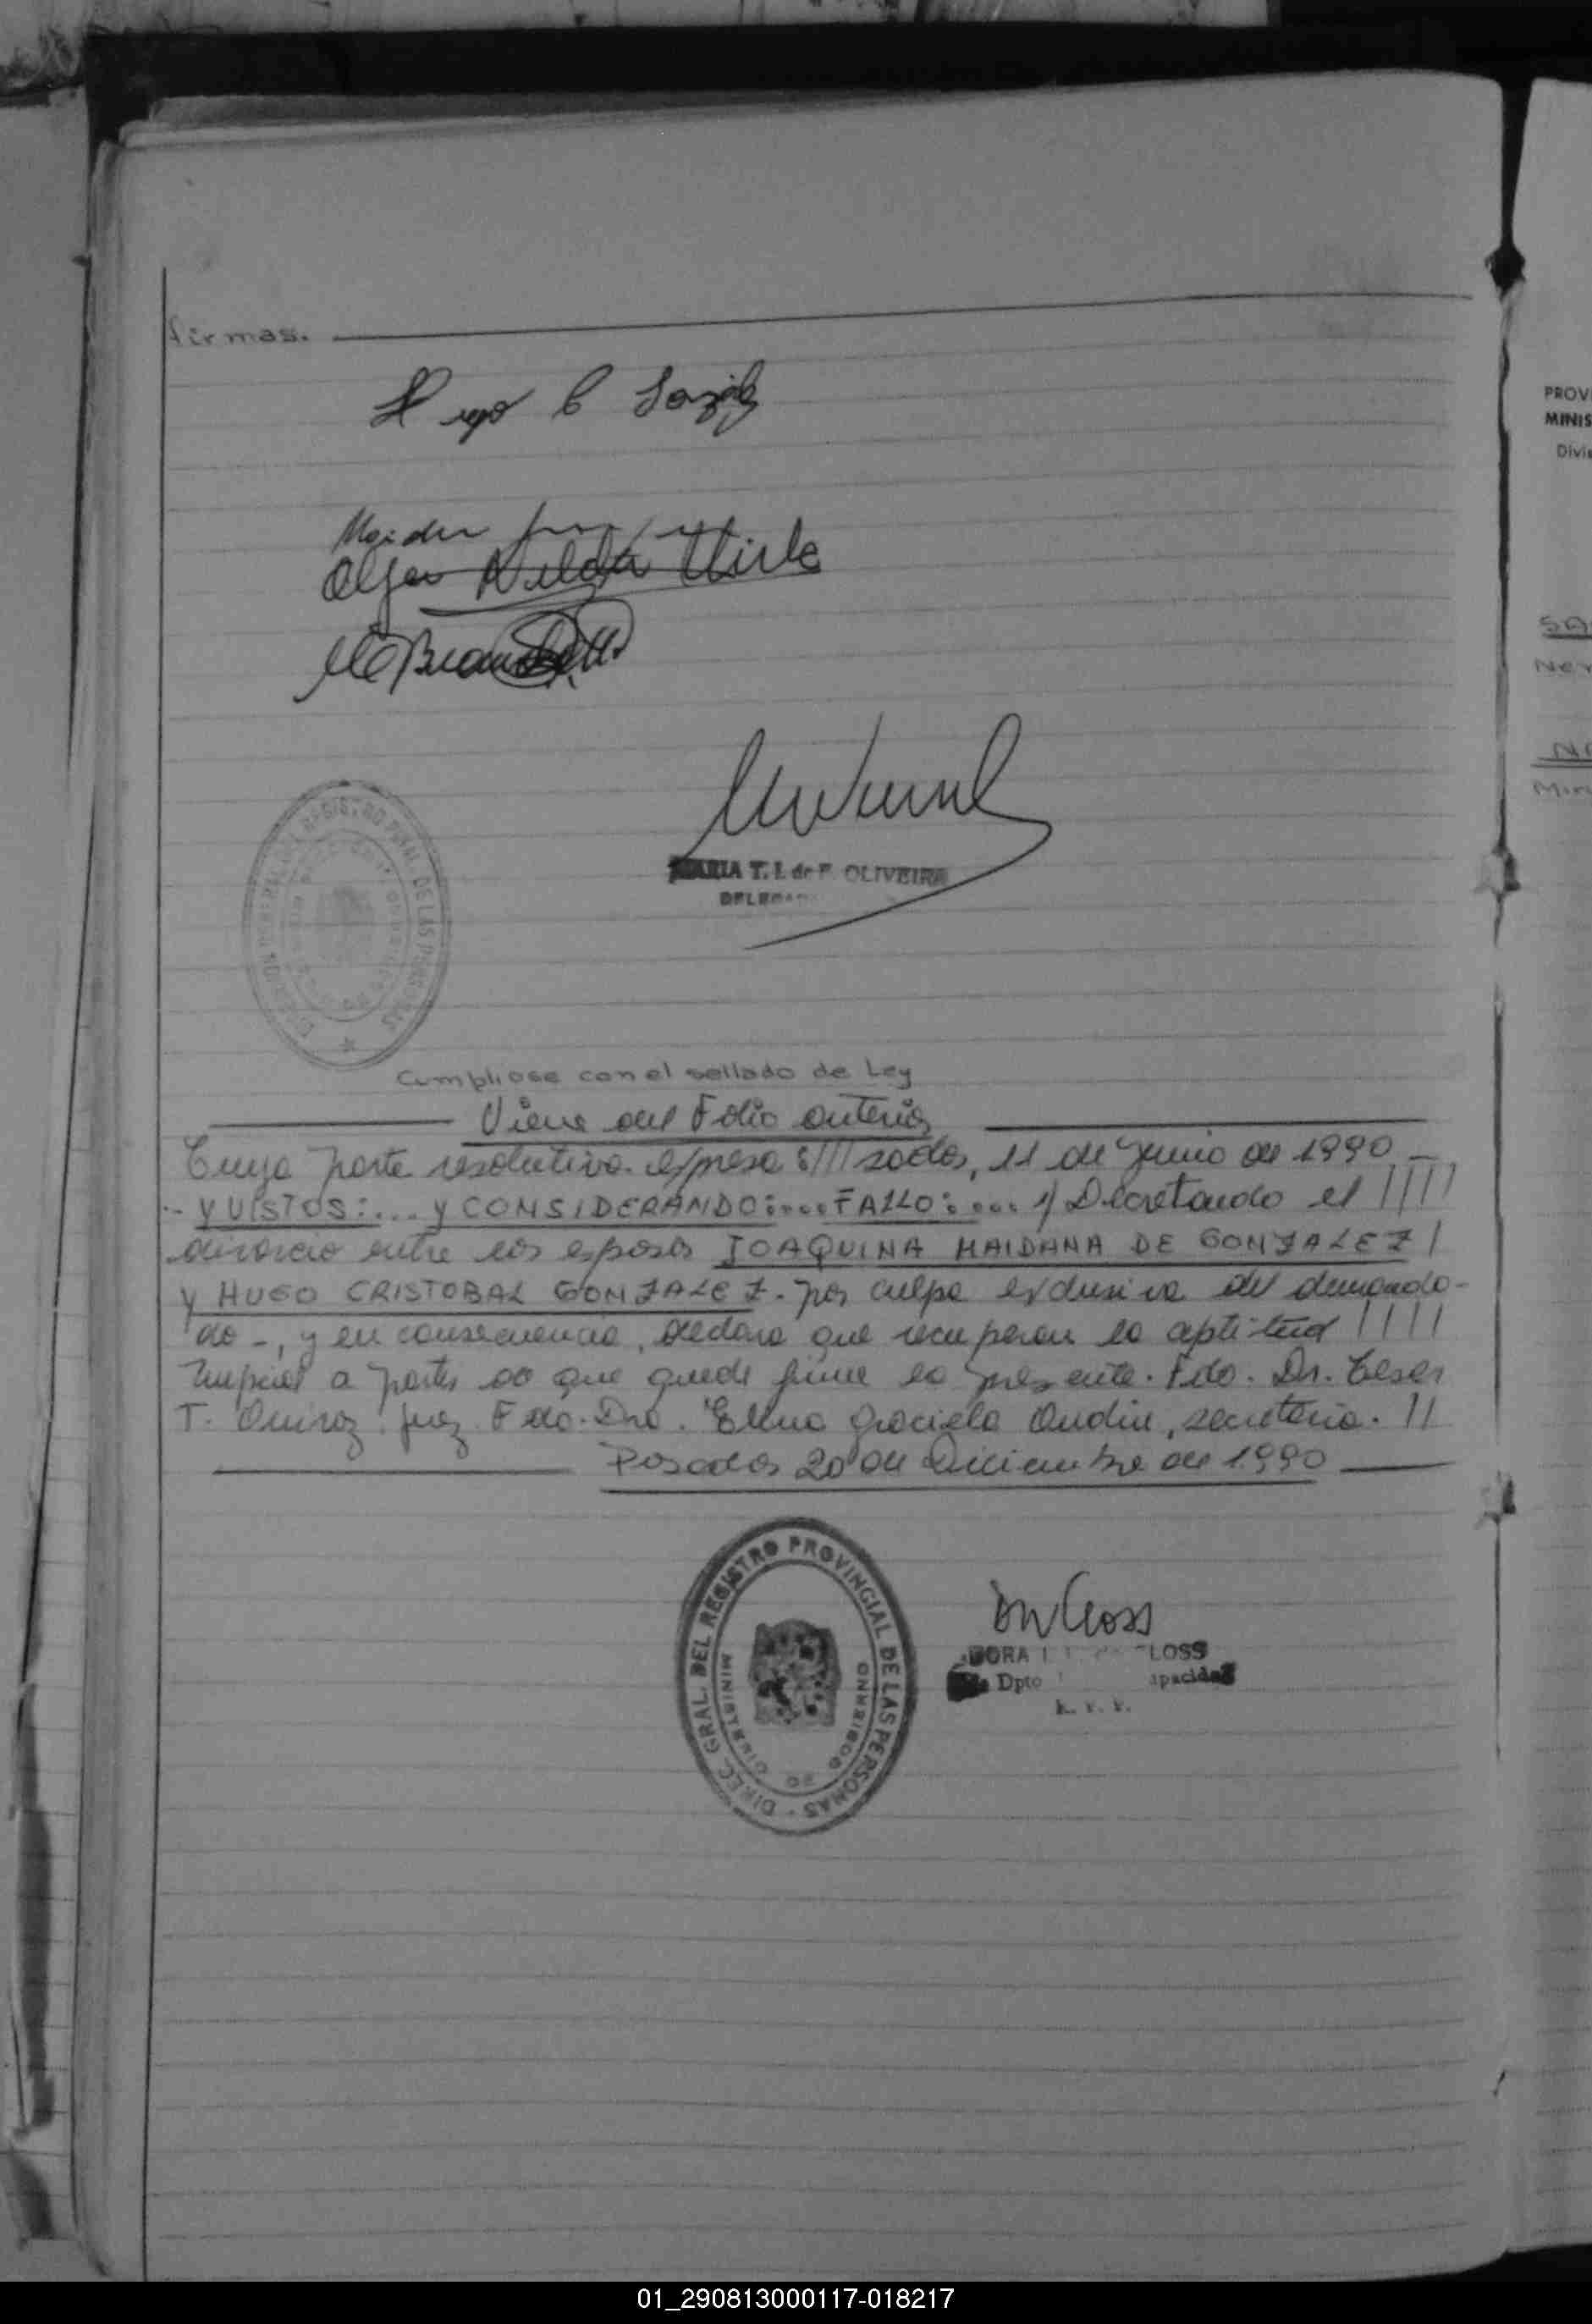 firmas.
Hugo C
Olga Nilda
MARIA T. I. de F. OLIVEIRA
DIREC. GRAL. DEL REGISTRO PROVINCIAL DE LAS PERSONAS
Cumpliose con el sellado de Ley
Viene del Folio anterior
Cuya parte resolutiva expresa ://// sadas, 11 de Junio de 1990 -
- Y VISTOS:... Y CONSIDERANDO:.... FALLO:.... 1/ Decretando el ////
divorcio entre los esposos JOAQUINA MAIDANA DE GONZALEZ /
Y HUGO CRISTOBAL GONZALEZ - por culpa exclusiva del demanda-
do -, y en consecuencia, declara que recuperan la aptitud ////
nupcial a partir de que quede firme la presente. Fdo. Dr. Cesar
T. Quiroz. juez. Fdo. Dra. Graciela, secretaria. //
Posadas 20 de Diciembre de 1990
DIREC. GRAL. DEL REGISTRO PROVINCIAL DE LAS PERSONAS -
MINISTERIO DE GOBIERNO
DORA LOSS
Dpto
PROV
MINIS
Divi
SA
Ner
01_290813000117-018217